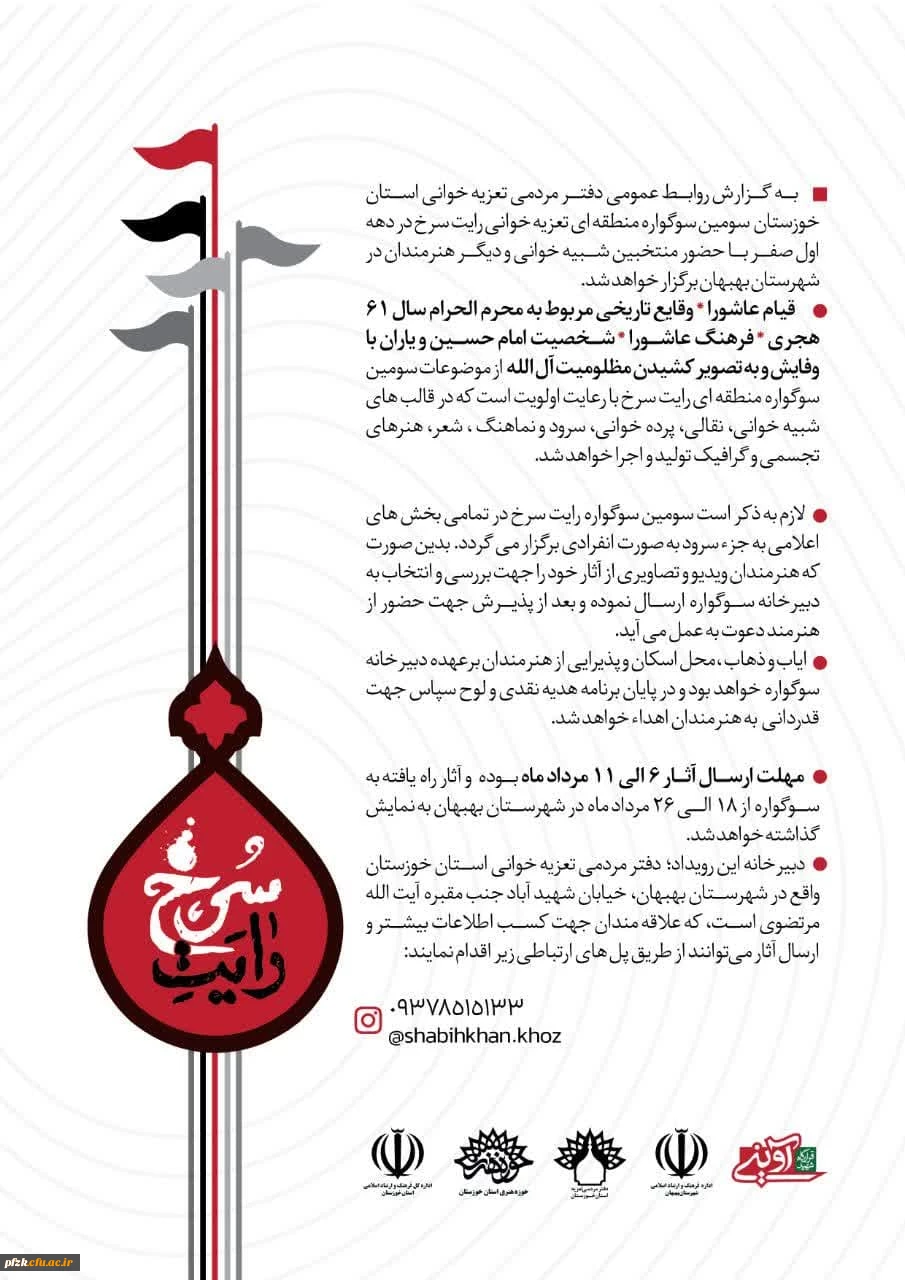 به گزارش روابط عمومی دفتر مردمی تعزیه خوانی استان
خوزستان سومین سوگواره منطقه ای تعزیه خوانی رایت سرخ در دهه
اول صفر با حضور منتخبین شبیه خوانی و دیگر هنرمندان در
شهرستان بهبهان برگزار خواهد شد.
قیام عاشورا * وقایع تاریخی مربوط به محرم الحرام سال ۶۱
هجری * فرهنگ عاشورا * شخصیت امام حسین و یاران با
وفایش و به تصویر کشیدن مظلومیت آل الله از موضوعات سومین
سوگواره منطقه ای رایت سرخ با رعایت اولویت است که در قالب های
شبیه خوانی، نقالی، پرده خوانی، سرود و نماهنگ ، شعر، هنرهای
تجسمی و گرافیک تولید و اجرا خواهد شد.
لازم به ذکر است سومین سوگواره رایت سرخ در تمامی بخش های
اعلامی به جزء سرود به صورت انفرادی برگزار می گردد. بدین صورت
که هنرمندان ویدیو و تصاویری از آثار خود را جهت بررسی و انتخاب به
دبیرخانه سوگواره ارسال نموده و بعد از پذیرش جهت حضور از
هنرمند دعوت به عمل می آید.
ایاب و ذهاب ،محل اسکان و پذیرایی از هنرمندان برعهده دبیرخانه
سوگواره خواهد بود و در پایان برنامه هدیه نقدی و لوح سپاس جهت
قدردانی به هنرمندان اهداء خواهد شد.
مهلت ارسال آثار ۶ الی ۱۱ مرداد ماه بوده و آثار راه یافته به
سوگواره از ۱۸ الی ۲۶ مرداد ماه در شهرستان بهبهان به نمایش
گذاشته خواهد شد.
دبیرخانه این رویداد؛ دفتر مردمی تعزیه خوانی استان خوزستان
واقع در شهرستان بهبهان، خیابان شهید آباد جنب مقبره آیت الله
مرتضوی است، که علاقه مندان جهت کسب اطلاعات بیشتر و
ارسال آثار می‌توانند از طریق پل های ارتباطی زیر اقدام نمایند:
۰۹۳۷۸۵۱۵۱۳۳
@shabihkhan.khoz
سرخ
رایت
قرارگاه شهید آوینی
اداره فرهنگ و ارشاد اسلامی
شهرستان بهبهان
دفتر مردمی تعزیه
استان خوزستان
حوزه هنری استان خوزستان
اداره کل فرهنگ و ارشاد اسلامی
استان خوزستان
pfzk.cfu.ac.ir